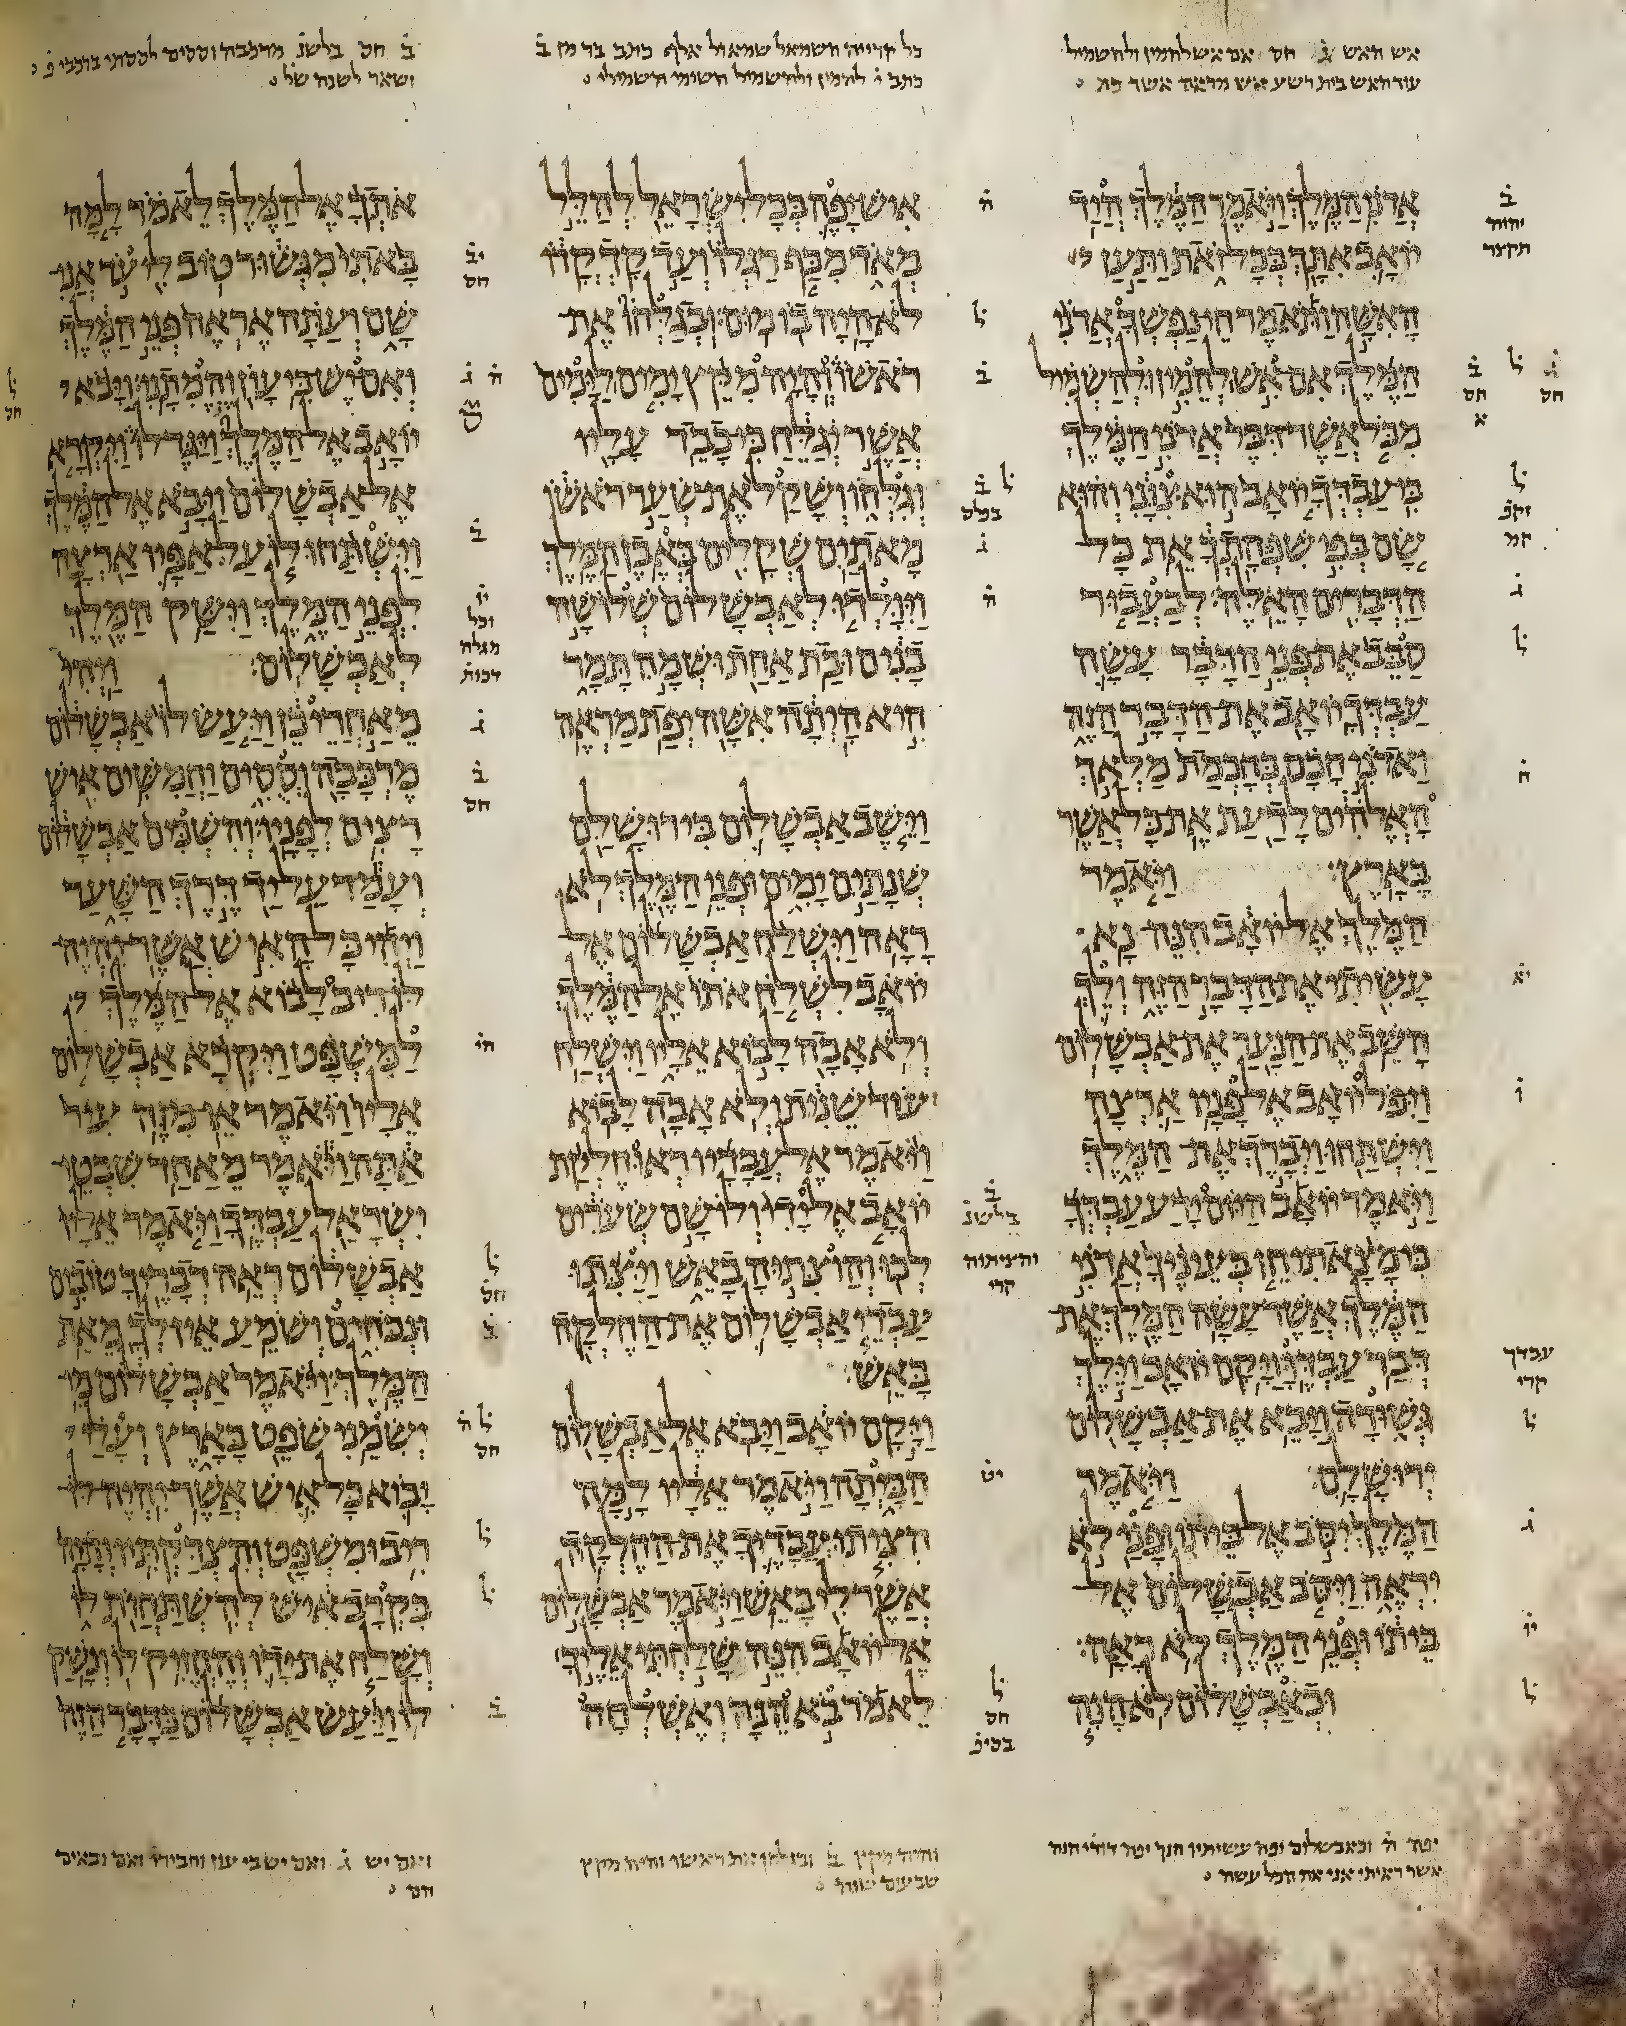 אש האש ג̇ חס אם אש להמין ולהשמיל
עוד האש בית רשע אש מדאר אשר בת
כל קרייה השמאל שמאול אלף כותב בר מן ב̇
כתב י̇ להמין ולהשמיל השימי השמילי
ב̇ חס בלשנ̇ מרכבה וססים לססתי ברכבי פ̇
ושאר לשנה של̇
אדני המלך ויאמר המלך היד
יואב אתך בכל זאת ותען
האשה ותאמר חי נפשך אדני
המלך אם אש להמין ולהשמיל
מכל אשר דבר אדני המלך
כי עבדך יואב הוא צוני והוא
שם בפי שפחתך את כל
הדברים האלה לבעבור
סבב את פני הדבר עשה
עבדך יואב את הדבר הזה
ואדני חכם כחכמת מלאך
האלהים לדעת את כל אשר
בארץ׃ ויאמר
המלך אל יואב הנה נא
עשיתי את הדבר הזה ולך
השב את הנער את אבשלום
ויפל יואב אל פניו ארצה
וישתחו ויברך את המלך
ויאמר יואב היום ידע עבדך
כי מצאתי חן בעיניך אדני
המלך אשר עשה המלך את
דבר עבדו ויקם יואב וילך
גשורה ויבא את אבשלום
ירושלם׃ ויאמר
המלך יסב אל ביתו ופני לא
יראה ויסב אבשלום אל
ביתו ופני המלך לא ראה׃
וכאבשלום לא היה
איש יפה בכל ישראל להלל
מאד מכף רגלו ועד קדקדו
לא היה בו מום ובגלחו את
ראשו והיה מקץ ימים לימים
אשר יגלח כי כבד עליו
וגלחו ושקל את שער ראשו
מאתים שקלים באבן המלך
ויולדו לאבשלום שלושה
בנים ובת אחת ושמה תמר
היא היתה אשה יפת מראה
וישב אבשלום בירושלם
שנתים ימים ופני המלך לא
ראה וישלח אבשלום אל
יואב לשלח אתו אל המלך
ולא אבה לבוא אליו וישלח
עוד שנית ולא אבה לבוא
ויאמר אל עבדיו ראו חלקת
יואב אל ידי ולו שם שערים
לכו והוצתיה באש ויצתו
עבדי אבשלום את החלקה
באש׃
ויקם יואב ויבא אל אבשלום
הביתה ויאמר אליו למה
הציתו עבדיך את החלקה
אשר לי באש ויאמר אבשלום
אל יואב הנה שלחתי אליך
לאמר בא הנה ואשלחה
אתך אל המלך לאמר למה
באתי מגשור טוב לי עד אני
שם ועתה אראה פני המלך
ואם יש בי עון והמתני ויבא
יואב אל המלך ויגד לו ויקרא
אל אבשלום ויבא אל המלך
וישתחו לו על אפיו ארצה
לפני המלך וישק המלך
לאבשלום׃ ויהי
מאחרי כן ויעש לו אבשלום
מרכבה וססים וחמשים איש
רצים לפניו והשכים אבשלום
ועמד על יד דרך השער
ויהי כל האיש אשר יהיה
לו ריב לבוא אל המלך
למשפט ויקרא אבשלום
אליו ויאמר אי מזה עיר
אתה ויאמר מאחד שבטי
ישראל עבדך ויאמר אליו
אבשלום ראה דבריך טובים
ונכחים ושמע אין לך מאת
המלך ויאמר אבשלום מי
ישמני שפט בארץ ועלי
יבוא כל איש אשר יהיה לו
ריב ומשפט והצדקתיו והיה
בקרב איש להשתחות לו
ושלח את ידו והחזיק לו ונשק
לו ויעש אבשלום כדבר הזה
יפה ה̇ וכאבשלום יפה עשיתיו הנך יפה דודי הנה
אשר ראיתי אני את הכל עשה
והיה מקץ ב̇ ובגלחו את ראשו והיה מקץ
שבעים שנה
ואם יש ג̇ ואם יש בי עון וחבירו ואם נביאים
הם